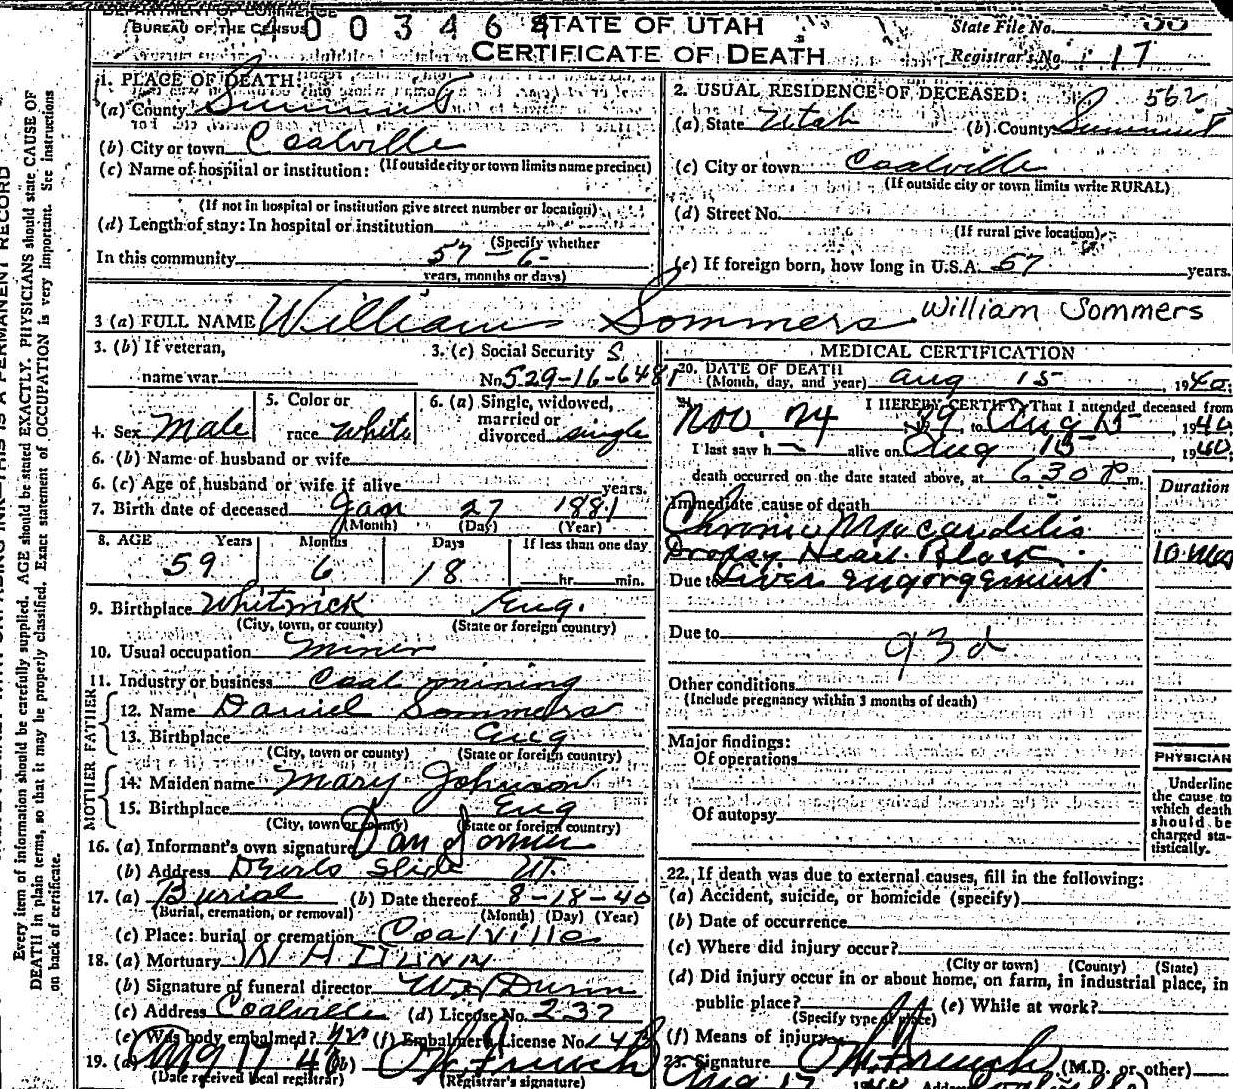 DEPARTMENT OF COMMERCE
BUREAU OF THE CENSUS
STATE OF UTAH
CERTIFICATE OF DEATH
State File No.
Registrar's No. 17
1. PLACE OF DEATH:
(a) County Summit
(b) City or town Coalville
(If outside city or town limits name precinct)
(c) Name of hospital or institution:
(If not in hospital or institution give street number or location)
(d) Length of stay: In hospital or institution
(Specify whether
In this community 57 - 6
years, months or days)
2. USUAL RESIDENCE OF DECEASED: 562
(a) State Utah (b) County Summit
(c) City or town Coalville
(If outside city or town limits write RURAL)
(d) Street No.
(If rural give location)
(e) If foreign born, how long in U.S.A. 57 years.
3 (a) FULL NAME William Sommers William Sommers
3. (b) If veteran,
name war
3. (c) Social Security
No. 529-16-6481
4. Sex Male
5. Color or
race White
6. (a) Single, widowed,
married or
divorced single
6. (b) Name of husband or wife
6. (c) Age of husband or wife if alive years.
7. Birth date of deceased Jan 27 1881
(Month) (Day) (Year)
8. AGE Years Months Days If less than one day
59 6 18 hr. min.
9. Birthplace Whitwick Eng.
(City, town, or county) (State or foreign country)
10. Usual occupation Miner
11. Industry or business Coal mining
FATHER
12. Name Daniel Sommers
13. Birthplace Eng
(City, town or county) (State or foreign country)
MOTHER
14. Maiden name Mary Johnson
15. Birthplace Eng
(City, town or county) (State or foreign country)
16. (a) Informant's own signature Dan Sommers
(b) Address Devils Slide Ut.
17. (a) Burial (b) Date thereof 8-18-40
(Burial, cremation, or removal) (Month) (Day) (Year)
(c) Place: burial or cremation Coalville
18. (a) Mortuary
(b) Signature of funeral director
(c) Address Coalville (d) License No. 237
(e) Was body embalmed? (f) Embalmer's License No.
19. (a) Aug 17 40 (b)
(Date received local registrar) (Registrar's signature)
MEDICAL CERTIFICATION
20. DATE OF DEATH
(Month, day, and year) Aug 15, 1940
I HEREBY CERTIFY, That I attended deceased from
Nov. 24 39, to Aug 15, 1940
I last saw h alive on Aug 15, 1940;
death occurred on the date stated above, at 6 30 P m.
Duration
Immediate cause of death
Chronic Myocarditis
Dropsy Heart Block 10 Mos
Due to Liver Engorgement
Due to
93d
Other conditions
(Include pregnancy within 3 months of death)
Major findings:
Of operations
Of autopsy
PHYSICIAN
Underline
the cause to
which death
should be
charged sta-
tistically.
22. If death was due to external causes, fill in the following:
(a) Accident, suicide, or homicide (specify)
(b) Date of occurrence
(c) Where did injury occur?
(City or town) (County) (State)
(d) Did injury occur in or about home, on farm, in industrial place, in
public place? (e) While at work?
(Specify type of place)
(f) Means of injury
23. Signature (M.D. or other)
Aug 17 Address Coalville
Every item of information should be carefully supplied. AGE should be stated EXACTLY. PHYSICIANS should state CAUSE OF
DEATH in plain terms, so that it may be properly classified. Exact statement of OCCUPATION is very important. See instructions
on back of certificate.